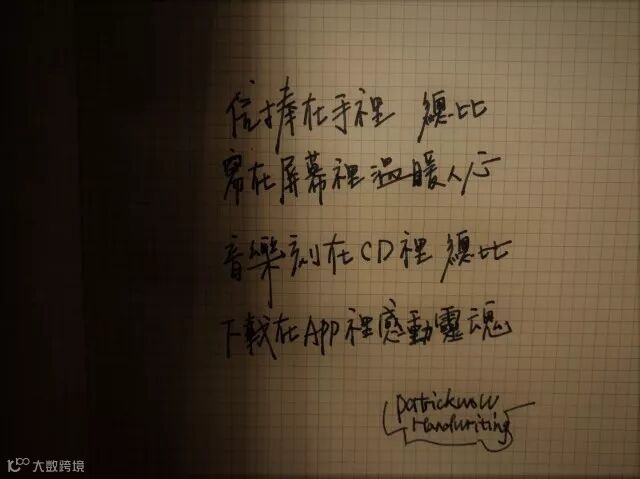 信捧在手裡 總比
寫在屏幕裡溫暖人心
音樂刻在CD裡 總比
下載在APP裡感動靈魂
patrickwow
Handwriting
大数跨境